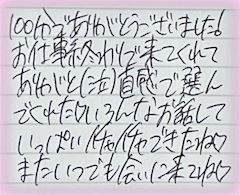 100分でありがとうございました！
お仕事終わりで来てくれて
ありがと(泣)直感で選ん
でくれたりいろんなお話して
いっぱいイチャイチャできたね♡
またいつでも会いに来てね♡